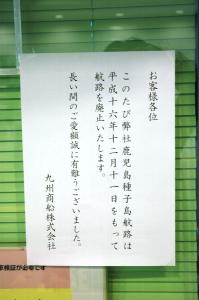 お客様各位
このたび弊社鹿児島種子島航路は
平成十六年十二月十一日をもって
航路を廃止いたします。
長い間のご愛顧誠に有難うございました。
九州商船株式会社
車検証が必要です